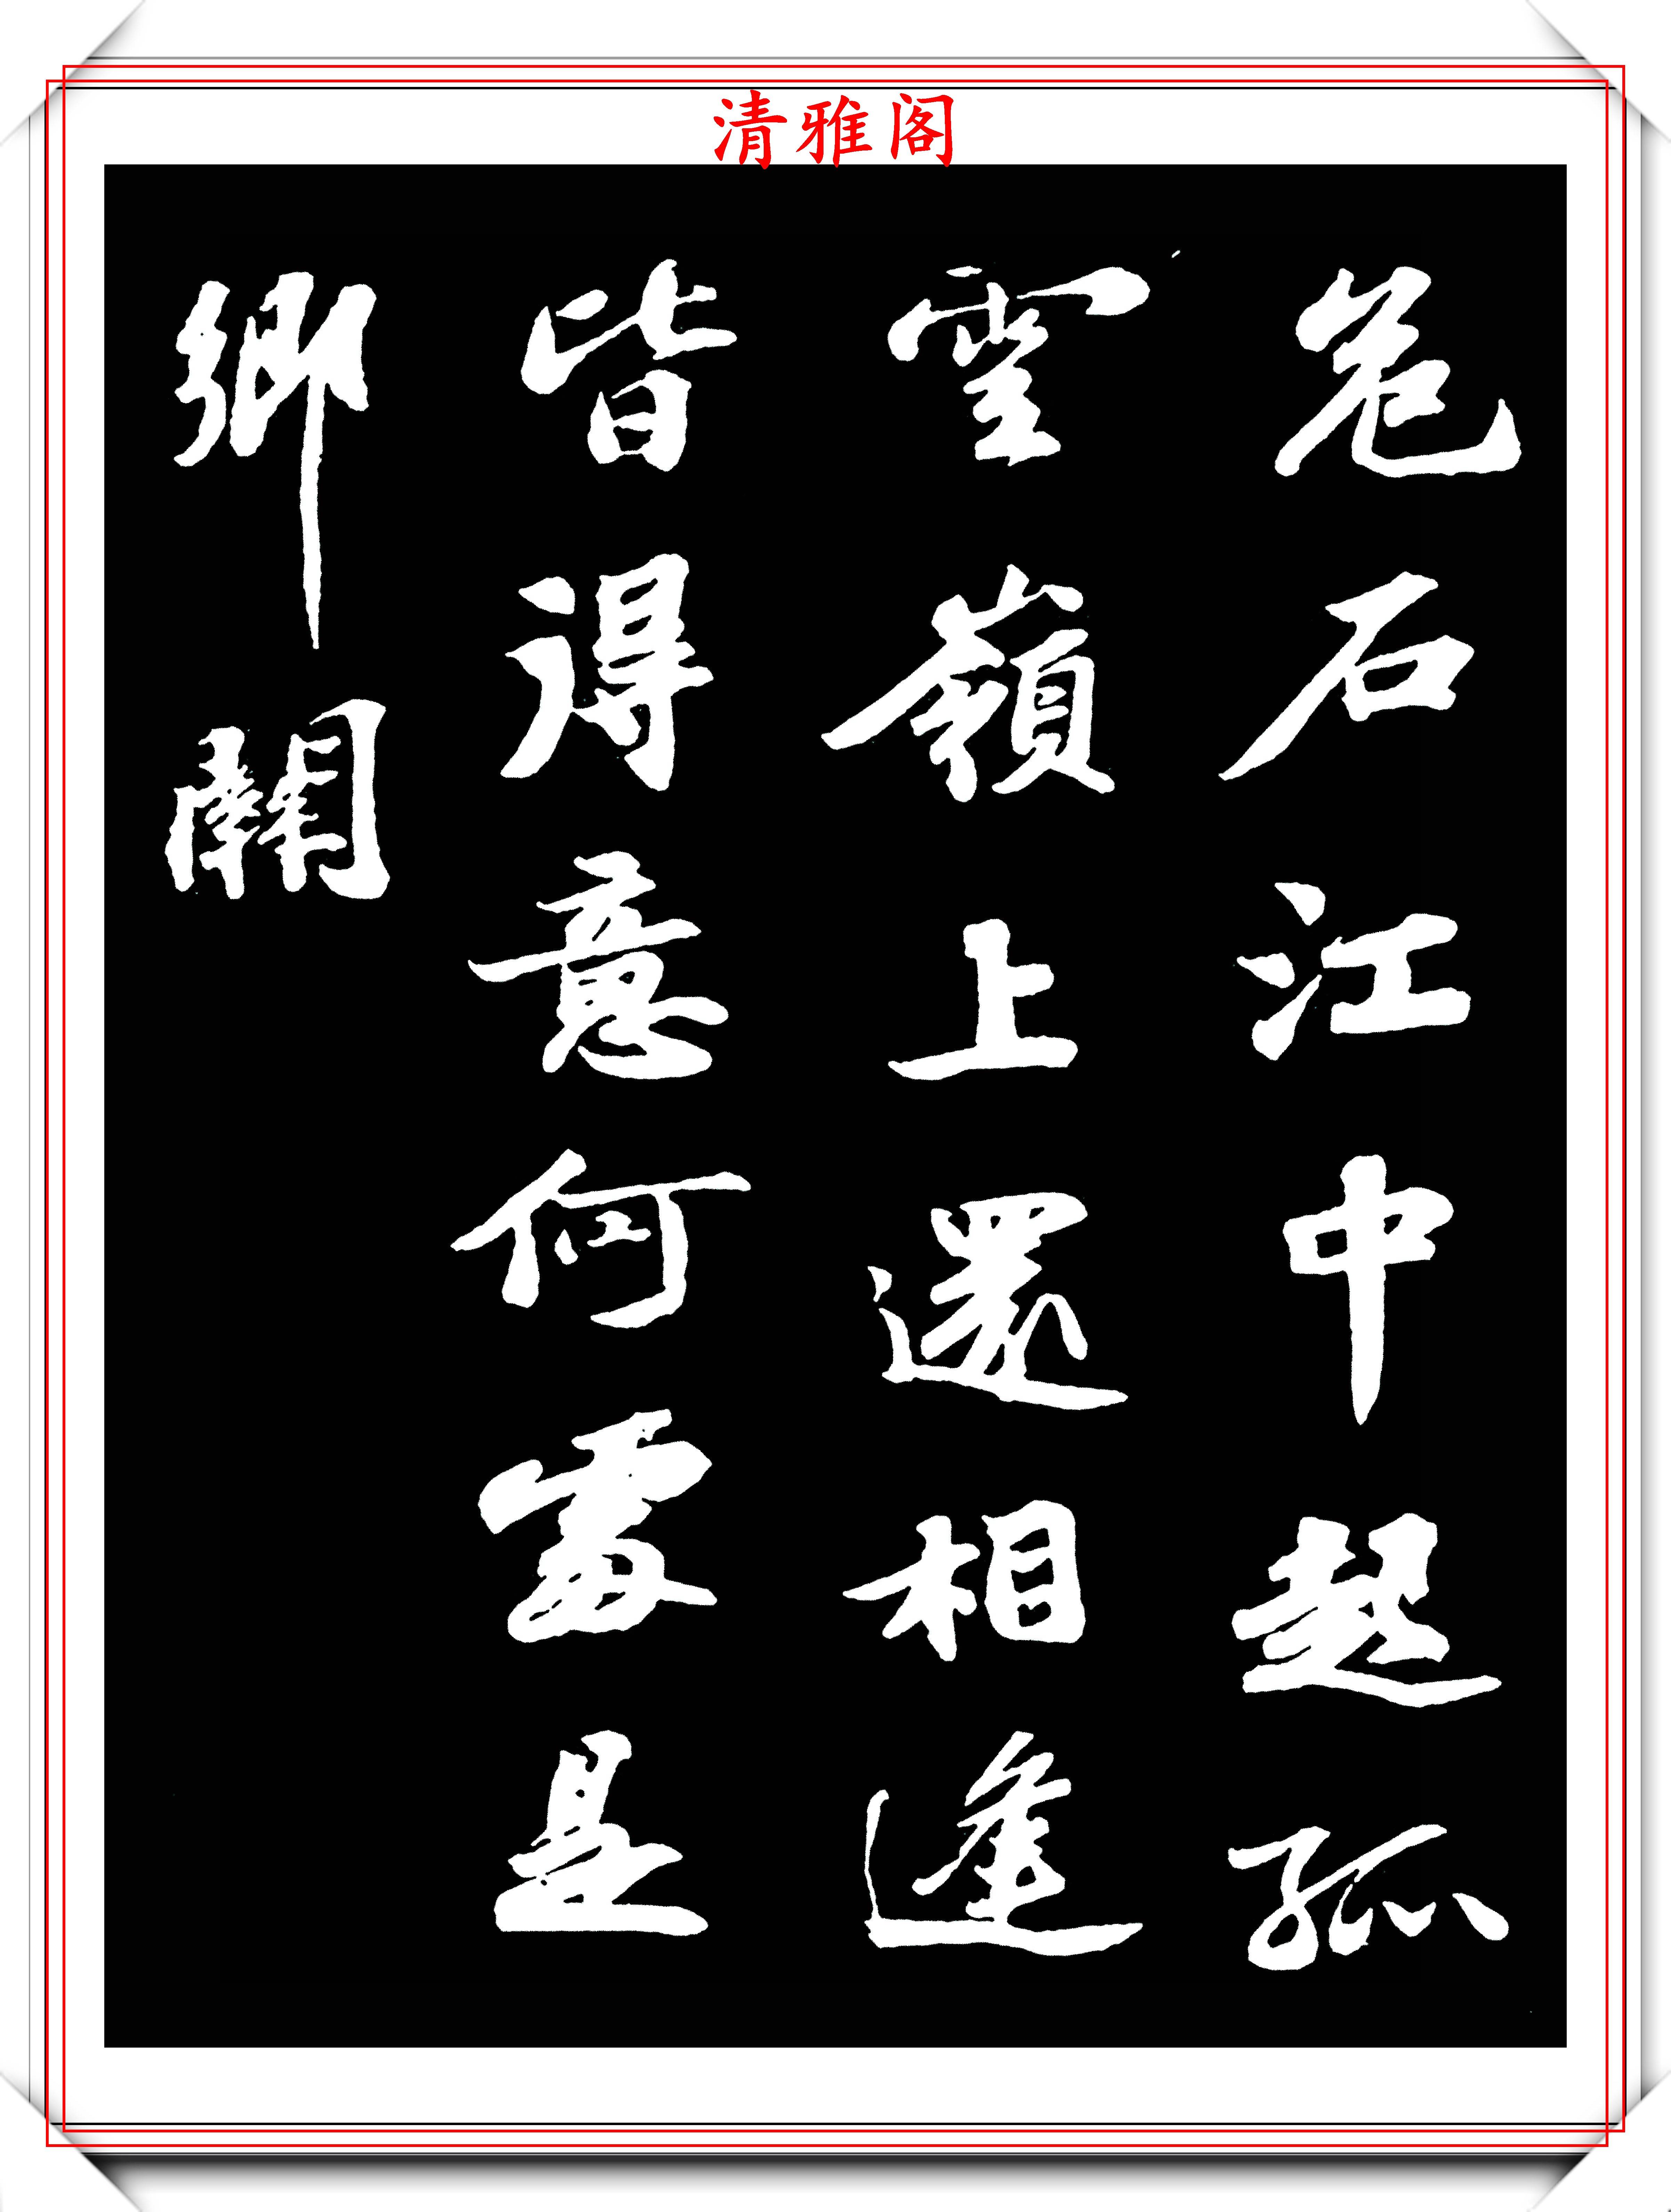 清雅阁
危石江中起孤
雲嶺上還相逢
皆得意何處是
鄉關